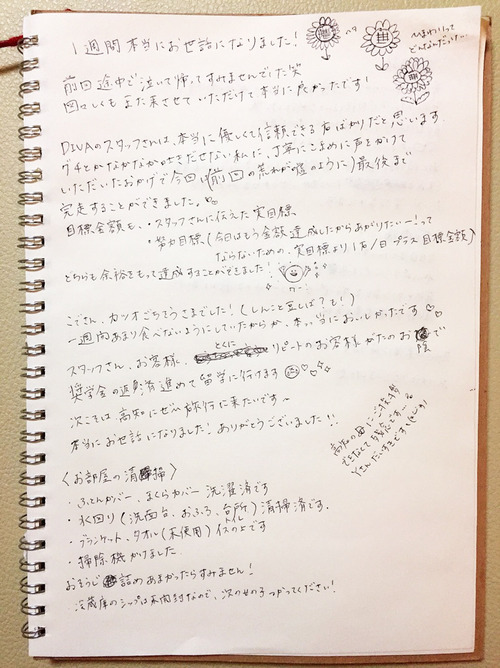 1週間本当にお世話になりました!
ひまわりって
どんなんだっけ…
前回途中で泣いて帰ってすみませんでした笑
図々しくもまた来させていただけて本当に良かったです!
DIVAのスタッフさんは、本当に優しくて信頼できる方ばかりだと思います
グチとかなかなかはきだせない私に、丁寧にこまめに声をかけて
いただいたおかげで今回は(前回の荒れが嘘のように)最後まで
完走することができました。
目標金額も、・スタッフさんに伝えた実目標
・努力目標(今日はもう金額達成したからあがりたいー!って
ならないための、実目標より1万/日プラス目標金額)
どちらも余裕をもって達成することができました!
こでさん、カツオごちそうさまでした!(しんこと豆しば?も!)
一週間あまり食べないようにしていたからか、本っ当においしかったです♡
スタッフさん、お客様、とくにリピートのお客様がたのお陰で
奨学金の返済進めて留学に行けます
次こそは高知にぜひ旅行に来たいです~
本当にお世話になりました!ありがとうございました!!
高知の母にご挨拶
できなくて残念です
Yさんだいすきです
<お部屋の清掃>
・ふとんカバー、まくらカバー洗濯済です
・水回り(洗面台、おふろ、台所、トイレ)清掃済です.
・ブランケット、タオル(未使用)イスの上です
・掃除機かけました
おそうじ詰めあまかったらすみません!
冷蔵庫のシップは未開封なので、次の女の子つかってください!